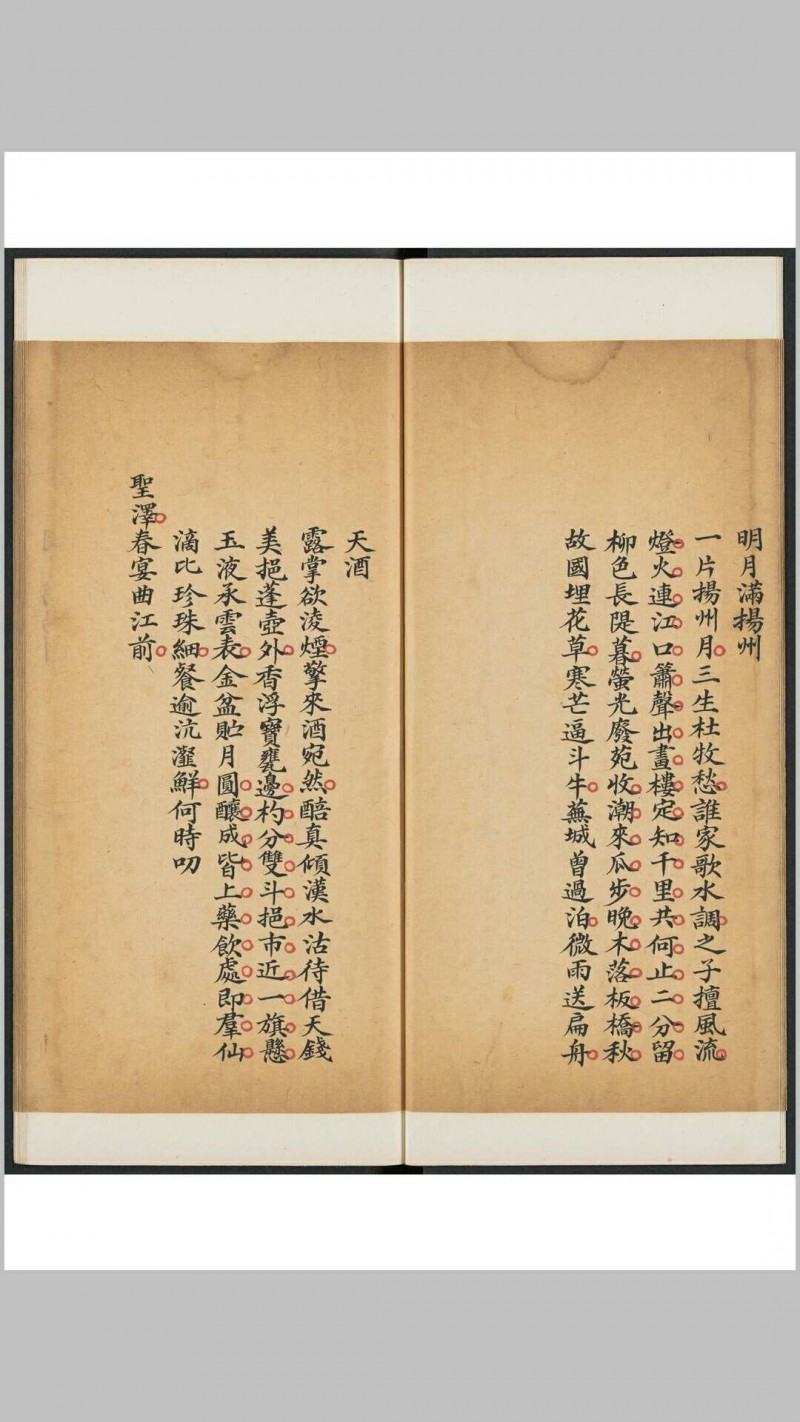 明月滿揚州
一片揚州月三生杜牧愁誰家歌水調之子擅風流
燈火連江口簫聲出畫樓定知千里共何止二分留
柳色長隄暮螢光廢苑收潮來瓜步晚木落板橋秋
故國埋花草寒芒逼斗牛蕪城曾過泊微雨送扁舟
天酒
露掌欲淩煙擎來酒宛然醅真傾漢水沽待借天錢
美挹蓬壺外香浮寶甕邊杓分雙斗挹市近一旗懸
玉液承雲表金盆貯月圓釀成皆上藥飲處即羣仙
滴比珍珠細餐逾沆瀣鮮何時叨
聖澤春宴曲江前